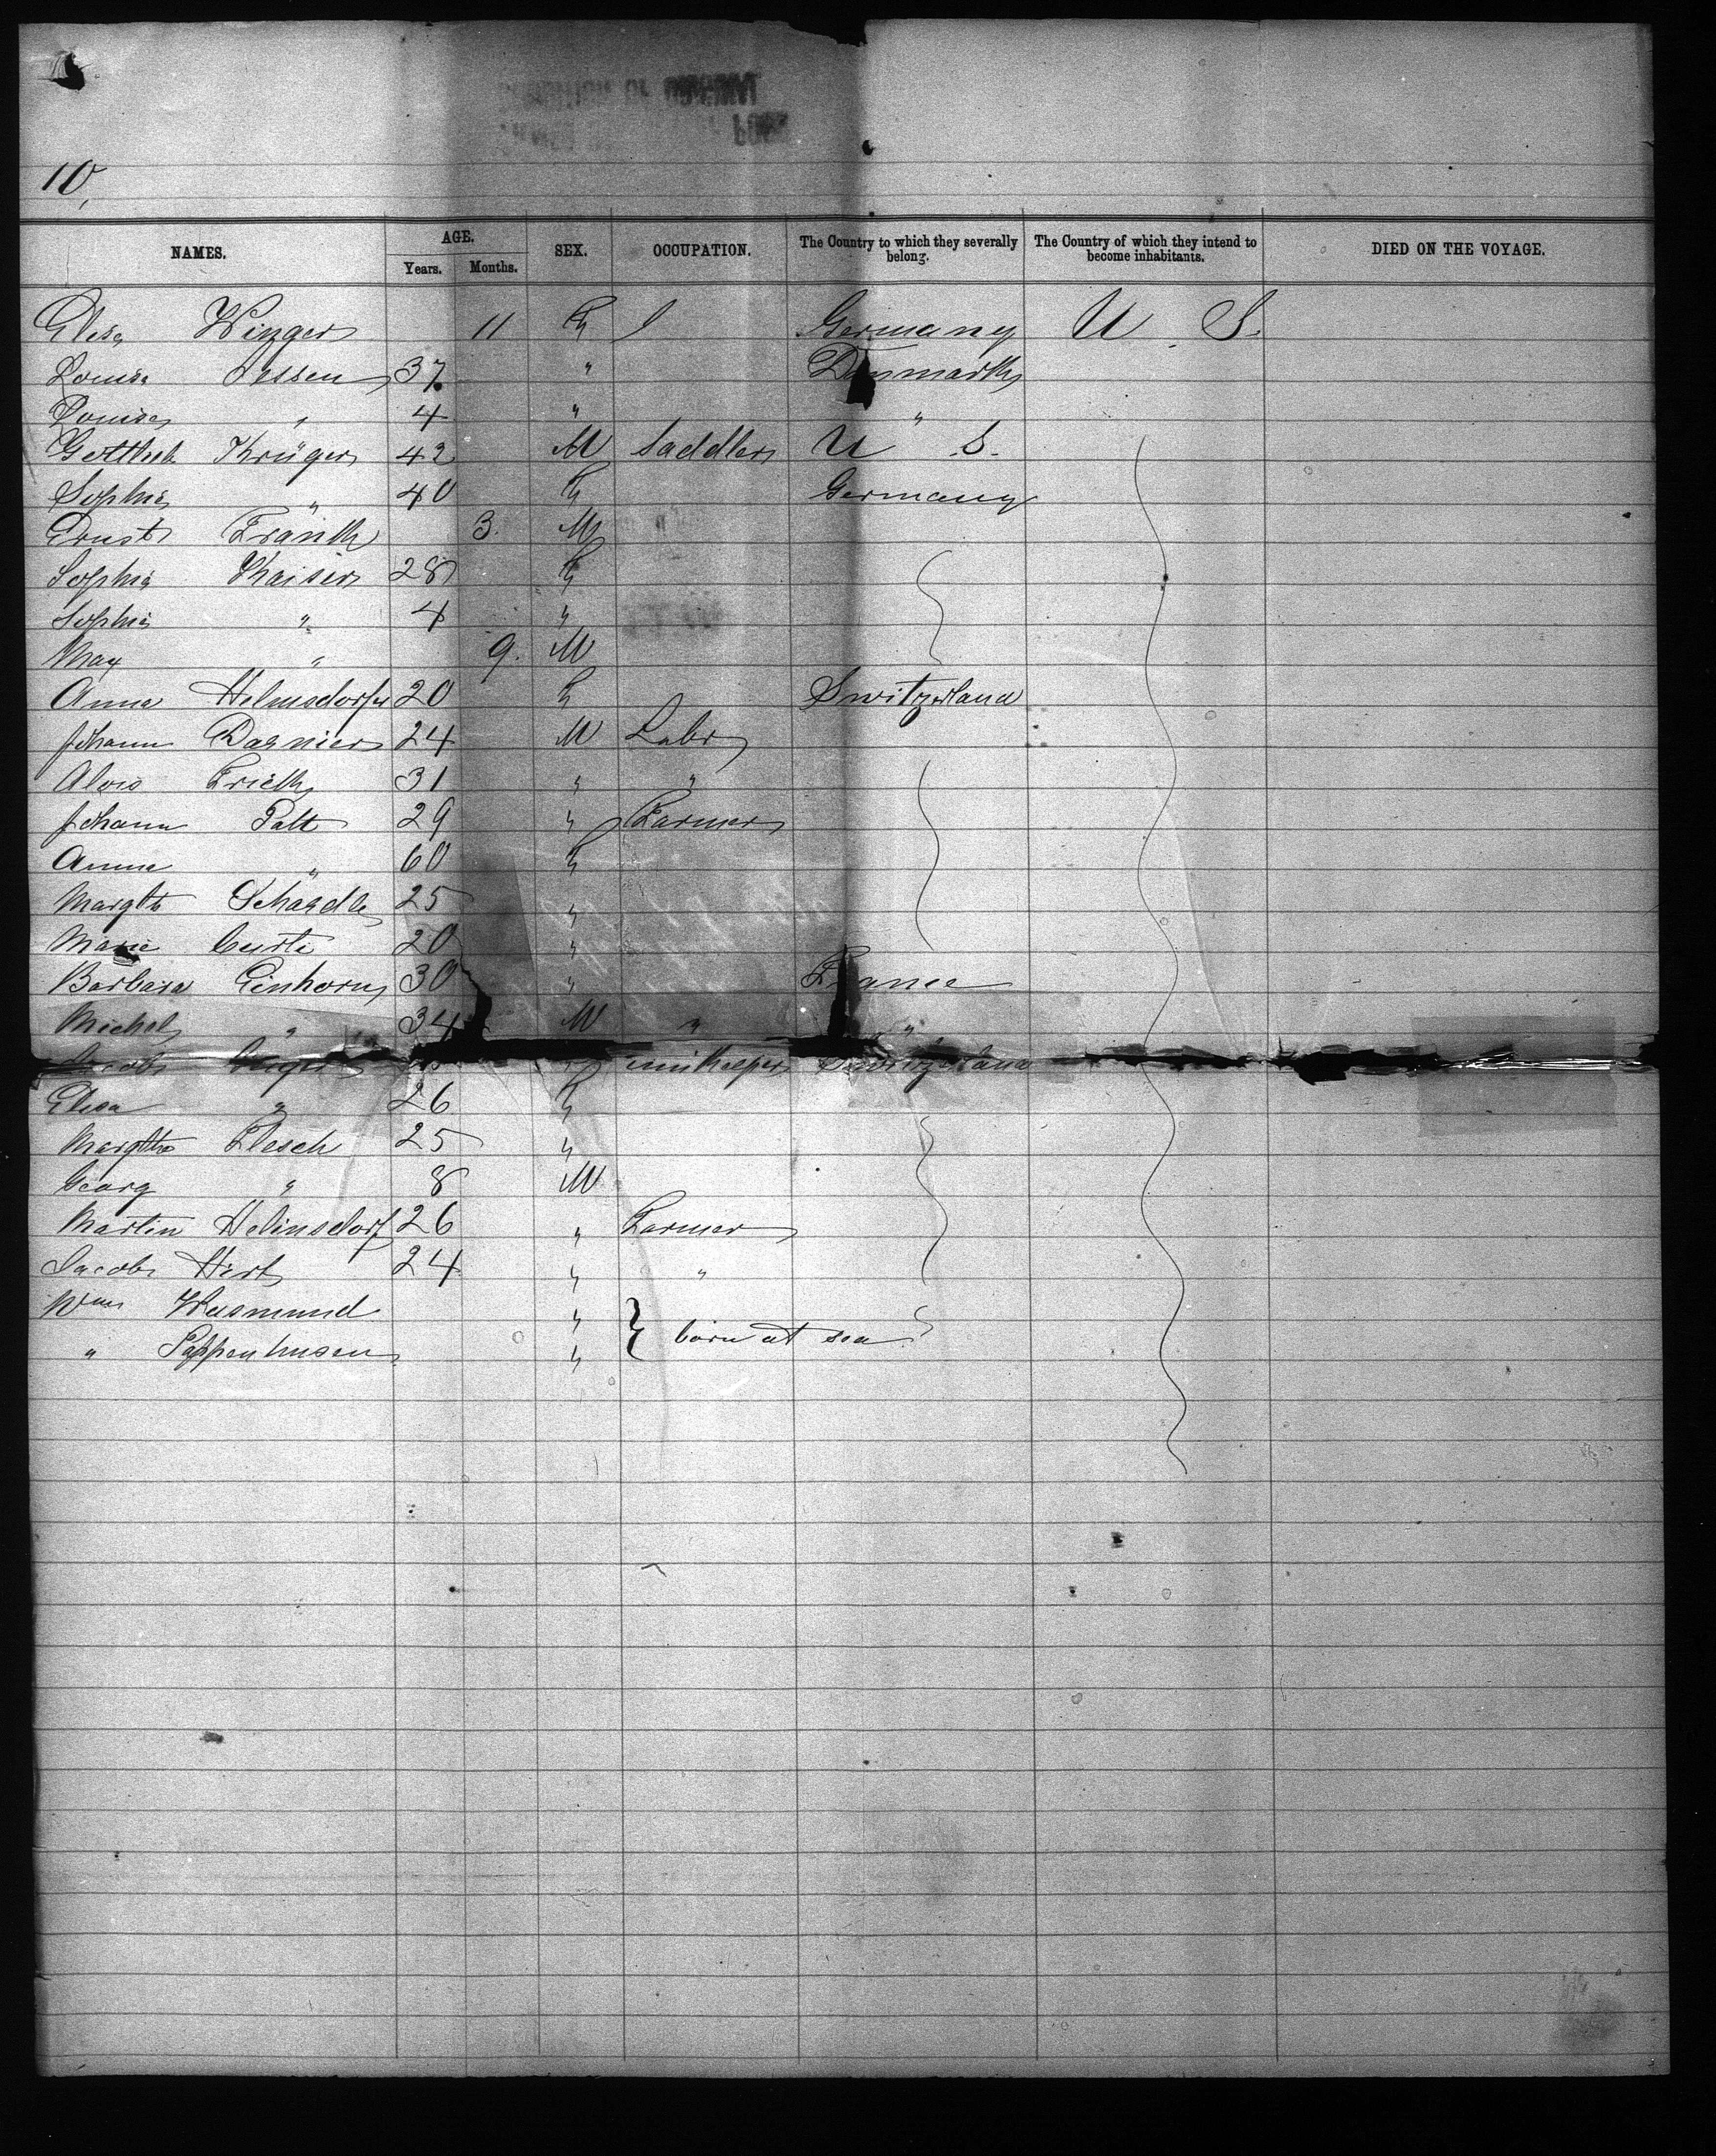 10,
NAMES. AGE. Years. Months. SEX. OCCUPATION. The Country to which they severally belong. The Country of which they intend to become inhabitants. DIED ON THE VOYAGE.
Elisa Winger 11 F Germany U S.
Louisa Jessen 37 " Denmark
Louisa " 4 " "
Gottlieb Krüger 42 M Saddler U S.
Sophia " 40 F Germany
Ernst Frank 3. M
Sophia Kaiser 28 F
Sophia " 4 "
Max " 9. M
Anna Helmsdorfer 20 F Switzerland
Johann 24 M Labr
Alois Frick 31 " "
Johann Patt 29 " Farmer
Anna " 60 F
Margth 25 "
Marie Curti 20 "
Barbara Einhorn 30 " France
Michel " 34 M " "
Jacob innkeeper Switzerland
Elisa " 26 F
Margtha Flesch 25 "
Georg " 8 M
Martin Helmsdorf 26 " Farmer
Jacob Hirt 24 " "
Wm Wasmund " born at sea
" Pappenhusen "